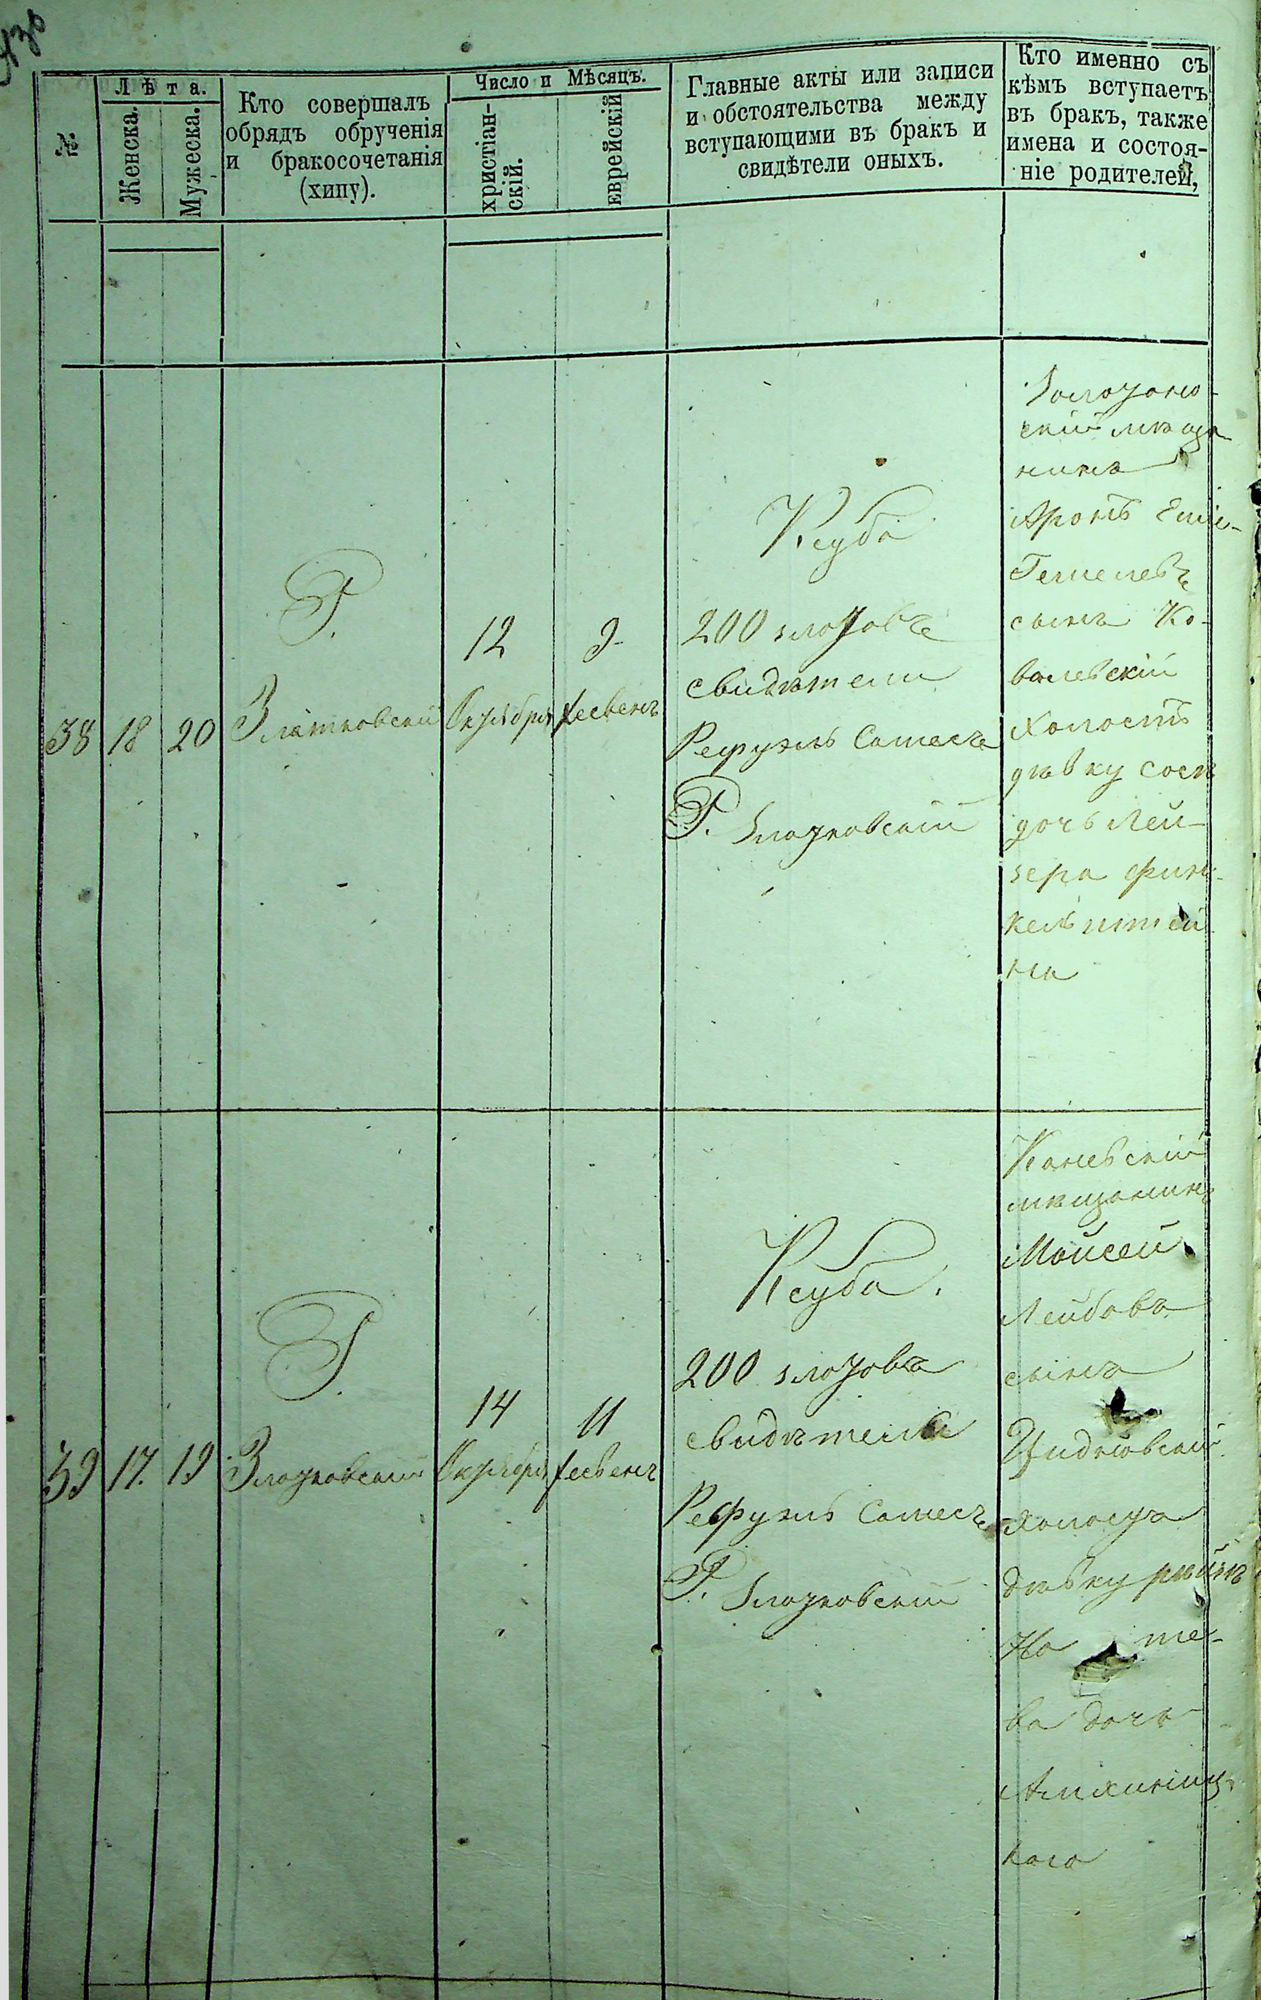 №
Лѣта.
Женска.
Мужеска.
Кто совершалъ
обрядъ обрученія
и бракосочетанія
(хипу).
Число и Мѣсяцъ.
христіан-
скій.
еврейскій
Главные акты или записи
и обстоятельства между
вступающими въ бракъ и
свидѣтели оныхъ.
Кто именно съ
кѣмъ вступаетъ
въ бракъ, также
имена и состоя-
ніе родителей,
38
18
20
Р.
Златковский
12
Октября
9
Хесвенъ
Ксуба
200 злотовъ
свидѣтели
Рефуэль
Р. Златковскій
скій мѣща
нинъ
Аронъ
сынъ Ко-
валевскій
Холостъ
дѣвку
дочь Лей-
зера Фин-
кельштей
на
39
17.
19
Р.
Златковский
14
Октября
11
Хесвенъ
Ксуба.
200 злотовъ
свидѣтели
Рефуэль
Р. Златковский
Каневскій
мѣщанинъ
Мойсей
Лейбовъ
сынъ
холостъ
дѣвку
ва дочь
каго